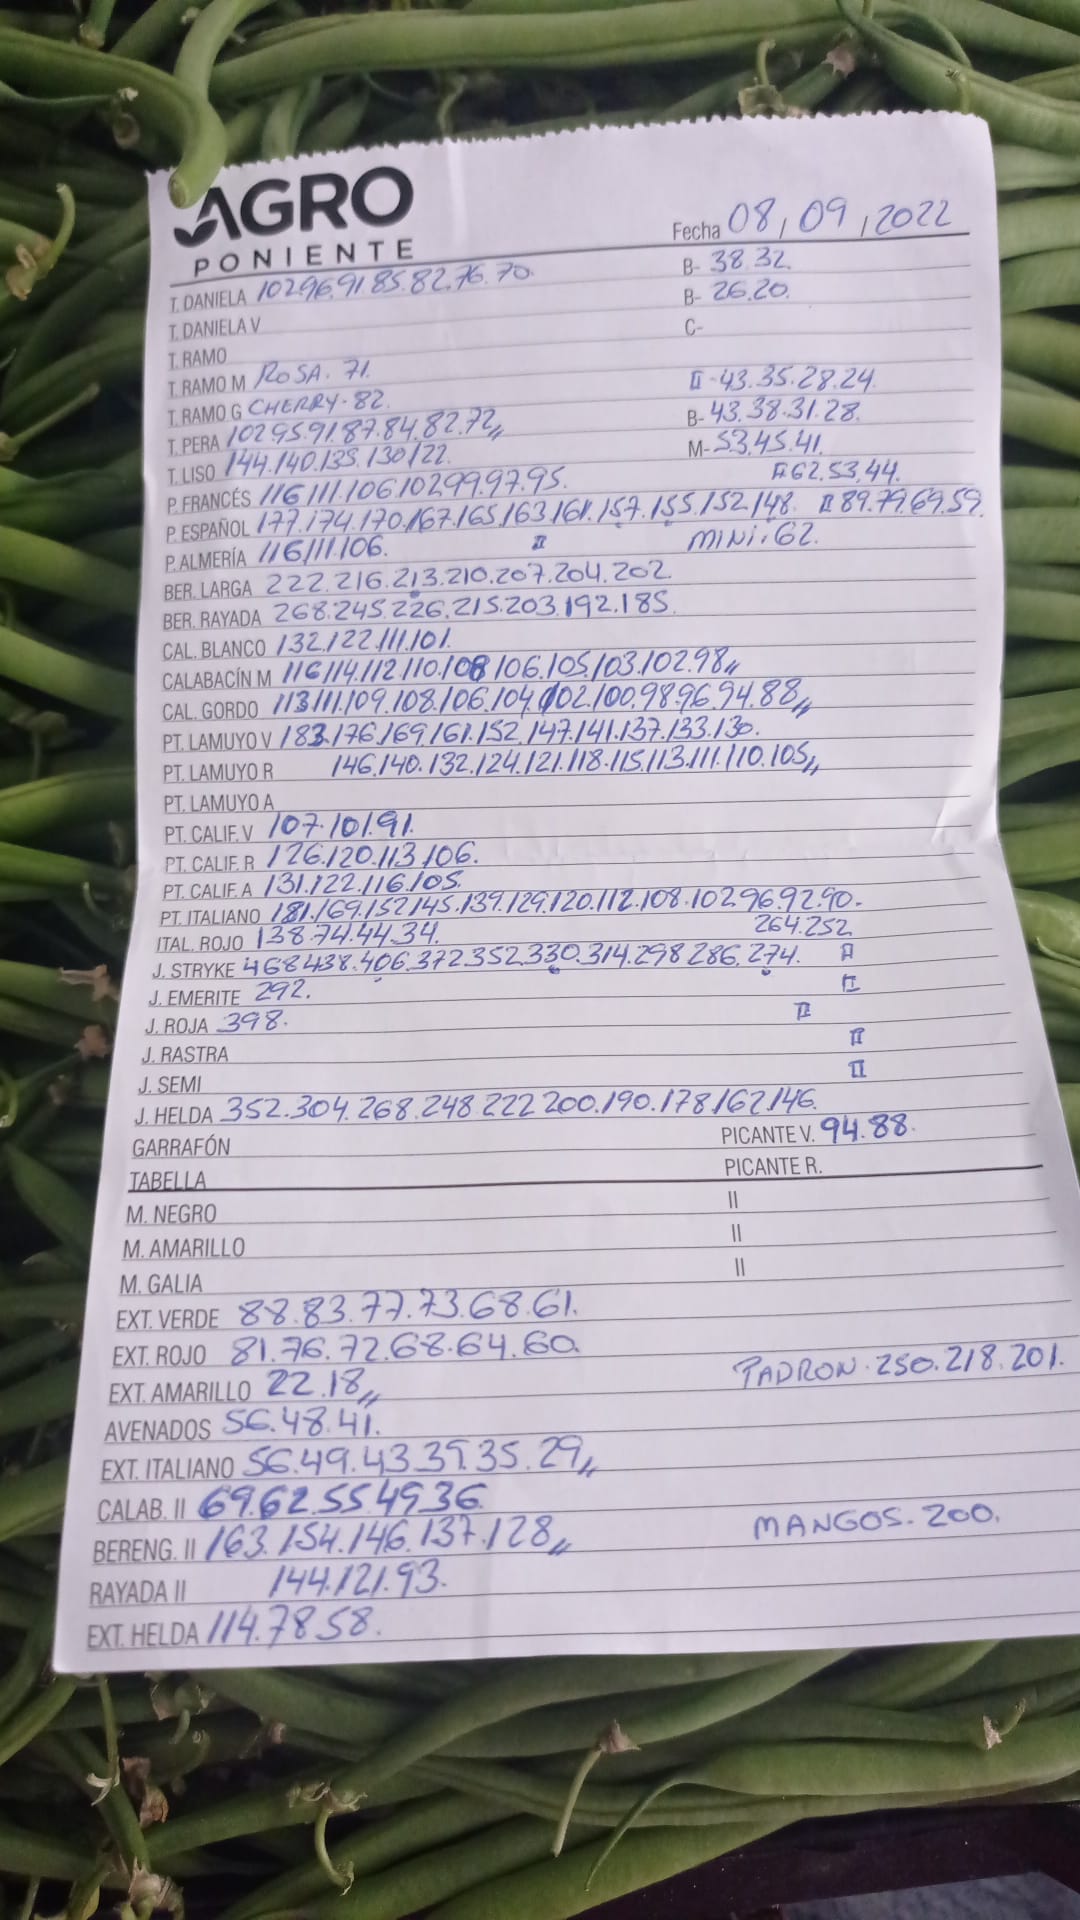 AGRO
PONIENTE
Fecha 08, 09, 2022
T. DANIELA 102.96.91.85.82.76.70. B- 38.32.
T. DANIELA V B- 26.20.
T. RAMO C-
T. RAMO M ROSA. 71.
T. RAMO G CHERRY-82. II-43.35.28.24.
T. PERA 102.95.91.87.84.82.72,, B-43.38.31.28.
T. LISO 144.140.135.130.122. M-53.45.41.
P. FRANCÉS 116.111.106.102.99.97.95. II 62.53.44.
P. ESPAÑOL 177.174.170.167.165.163.161.157.155.152.148. II 89.79.69.59.
P. ALMERÍA 116.111.106. II MINI.62.
BER. LARGA 222.216.213.210.207.204.202.
BER. RAYADA 268.245.226.215.203.192.185.
CAL. BLANCO 132.122.111.101.
CALABACÍN M 116.114.112.110.108.106.105.103.102.98,,
CAL. GORDO 113.111.109.108.106.104.102.100.98.96.94.88,,
PT. LAMUYO V 183.176.169.161.152.147.141.137.133.130.
PT. LAMUYO R 146.140.132.124.121.118.115.113.111.110.105,,
PT. LAMUYO A
PT. CALIF. V 107.101.91.
PT. CALIF. R 126.120.113.106.
PT. CALIF. A 131.122.116.105.
PT. ITALIANO 181.169.152.145.139.129.120.112.108.102.96.92.90.
ITAL. ROJO 138.74.44.34. 264.252.
J. STRYKE 468.438.406.372.352.330.314.298.286.274. II
J. EMERITE 292. II
J. ROJA 398. II
J. RASTRA II
J. SEMI II
J. HELDA 352.304.268.248.222.200.190.178.162.146.
GARRAFÓN PICANTE V. 94.88.
TABELLA PICANTE R.
M. NEGRO II
M. AMARILLO II
M. GALIA II
EXT. VERDE 88.83.77.73.68.61.
EXT. ROJO 81.76.72.68.64.60.
EXT. AMARILLO 22.18,, PADRON.250.218.201.
AVENADOS 56.48.41.
EXT. ITALIANO 56.49.43.39.35.29,,
CALAB. II 69.62.55.49.36.
BERENG. II 163.154.146.137.128,, MANGOS.200.
RAYADA II 144.121.93.
EXT. HELDA 114.78.58.